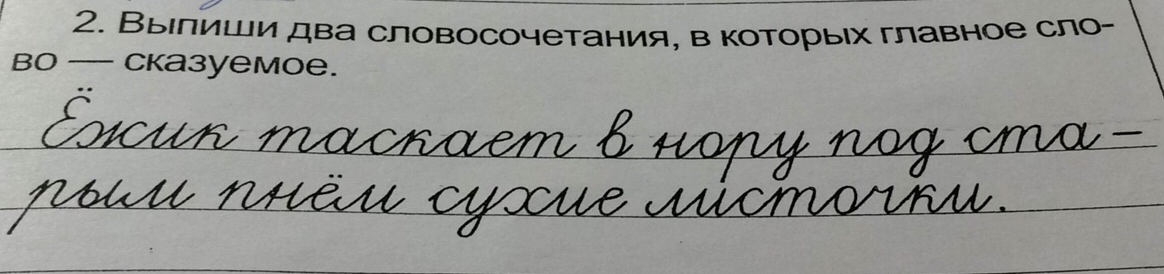 2. Выпиши два словосочетания, в которых главное сло-
во — сказуемое.
Ёжик таскает в нору под ста-
рым пнём сухие листочки.